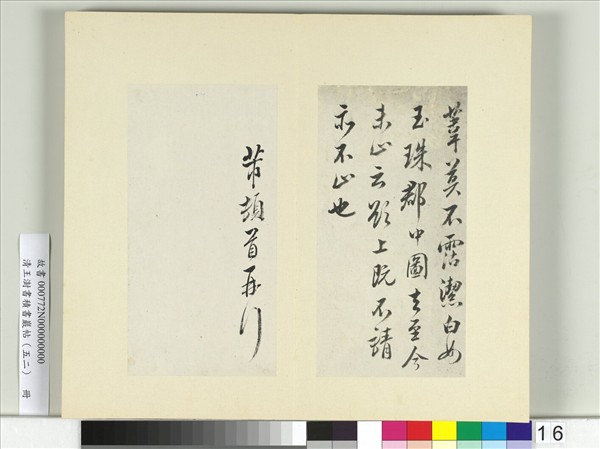 莫不霑潔白如
玉珠郡中圖去至今
未止云欲上既不請
亦不止也
芾頓首再行
故書000772N000000000
清王澍書積書巖帖（五二） 冊
16